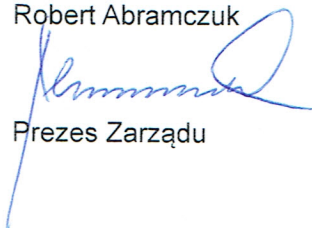 Robert Abramczuk
Prezes Zarządu